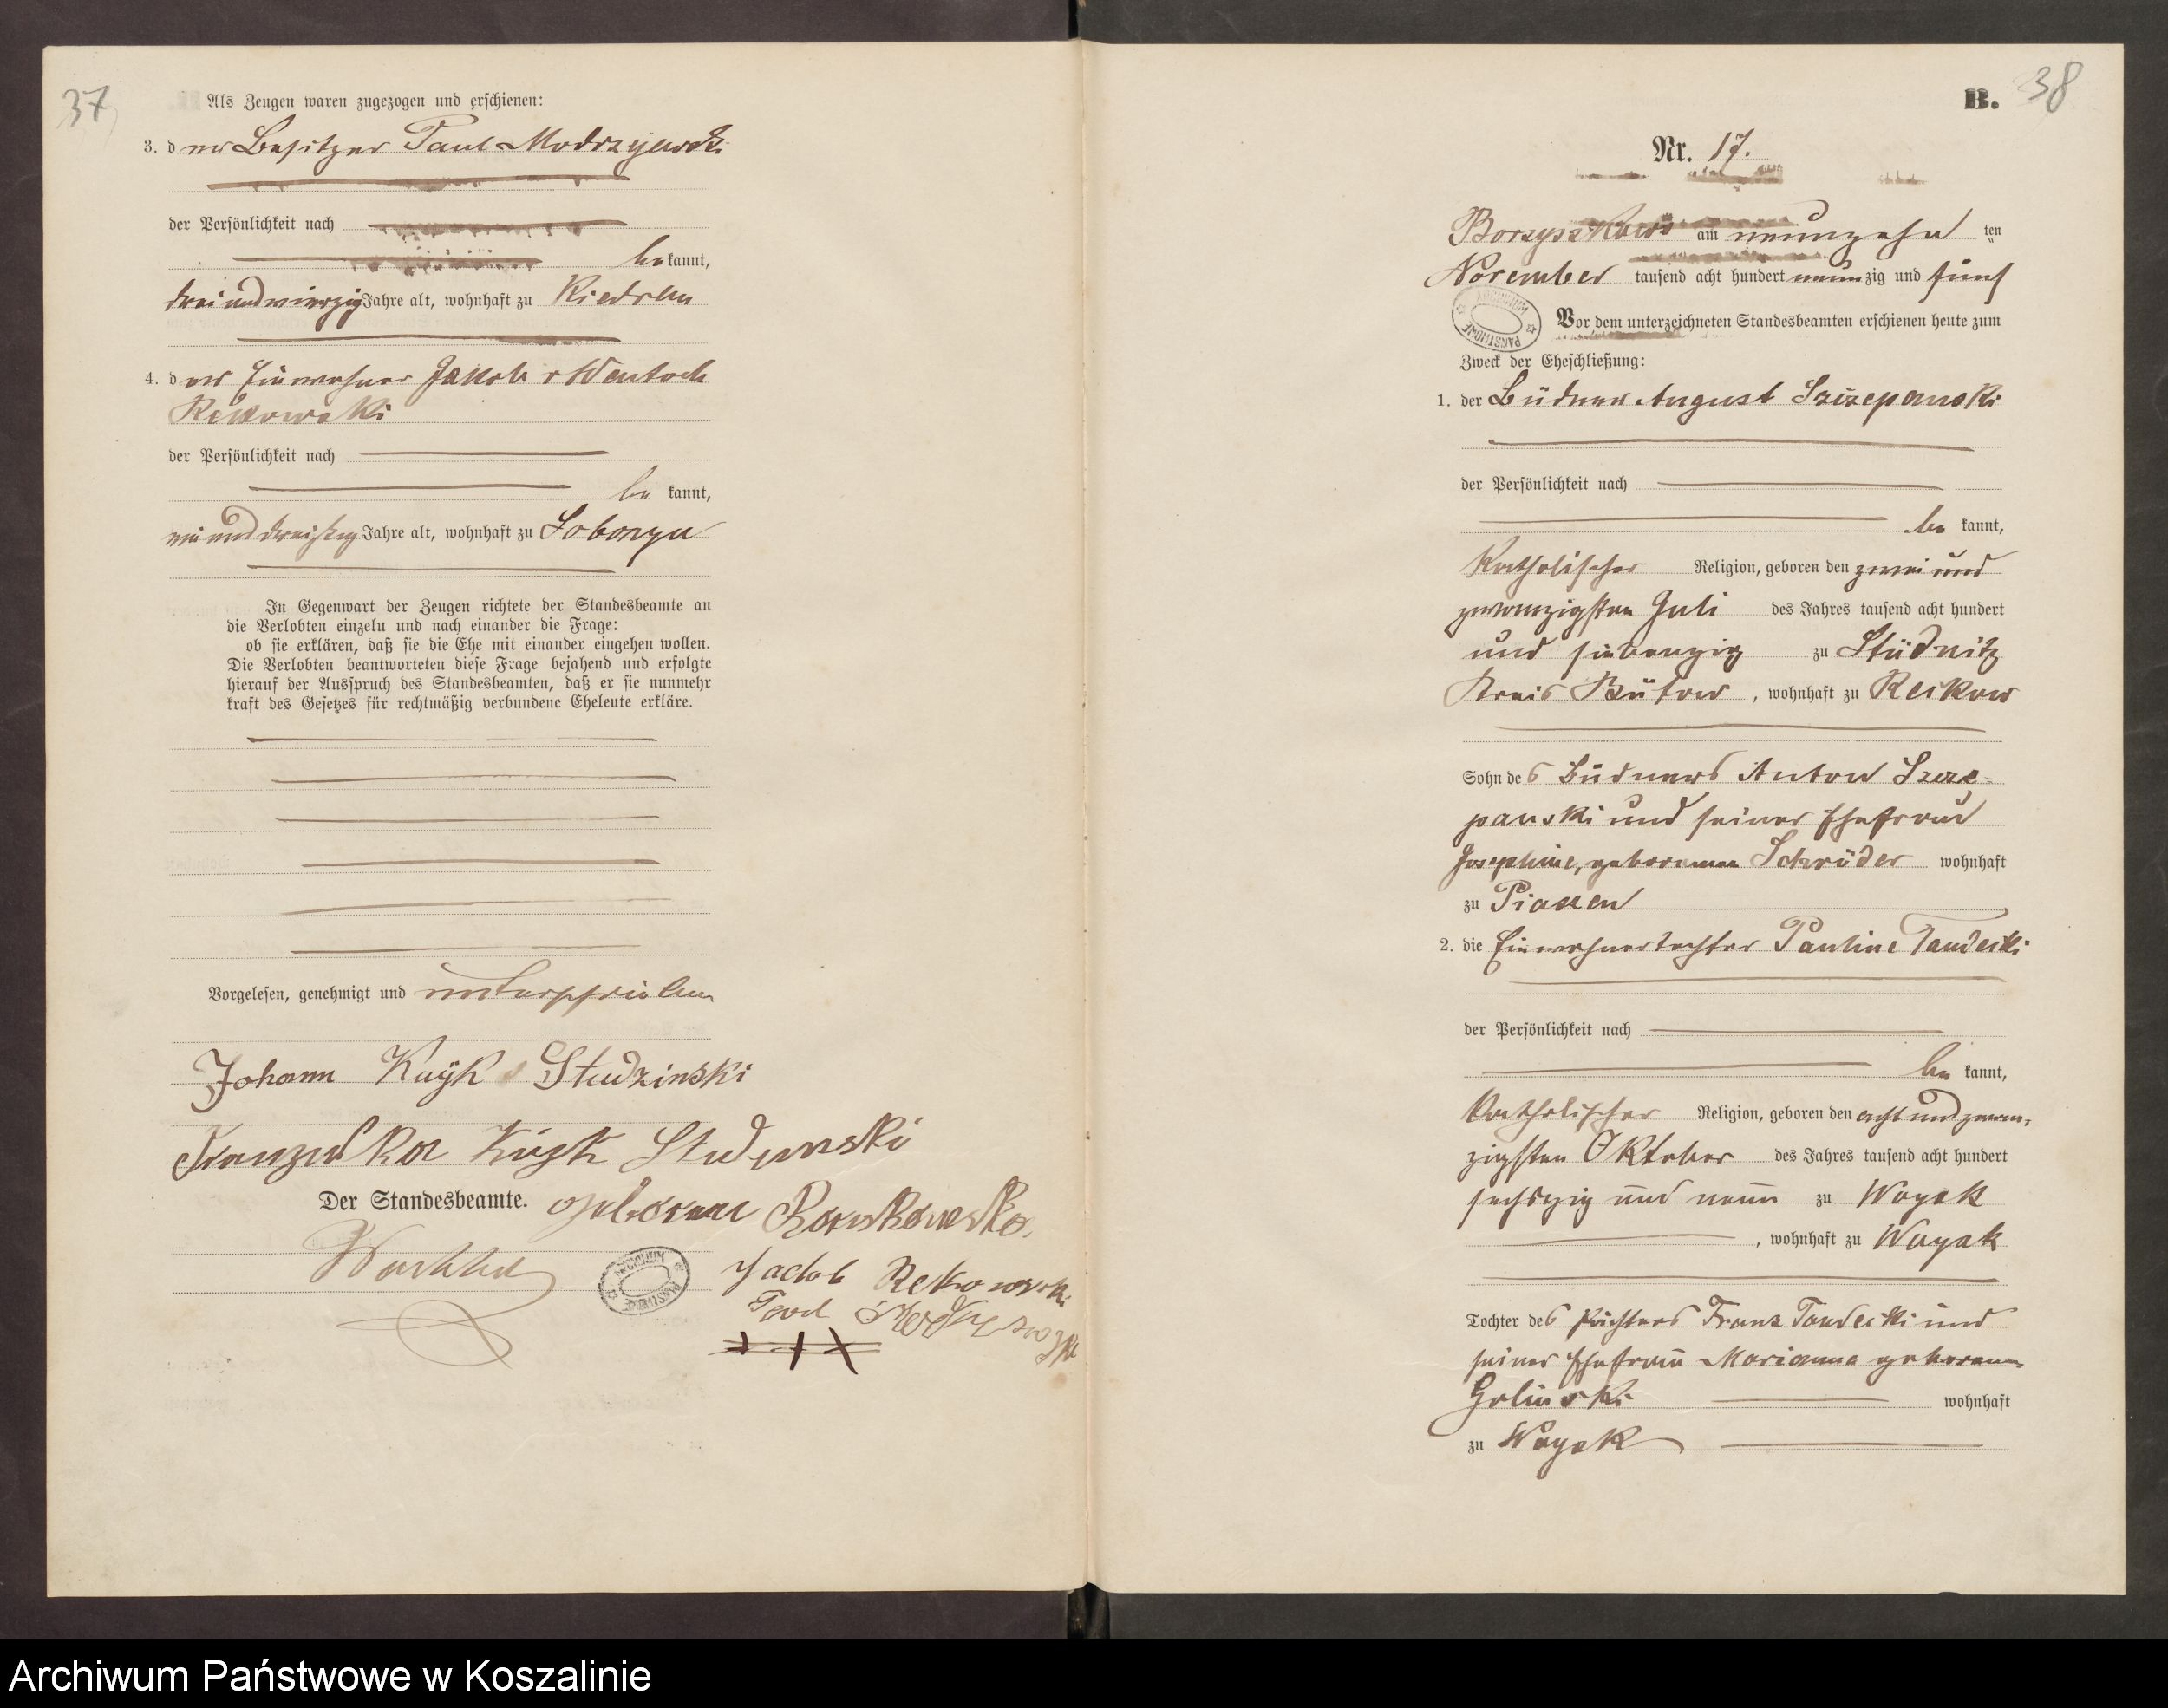 37
Als Zeugen waren zugezogen und erschienen:
3. der Besitzer Paul Modrzejewski
der Persönlichkeit nach
bekannt,
dreiundvierzig Jahre alt, wohnhaft zu Kiedrau
4. der Einwohner Jakob v Wentoch
Rekowski
der Persönlichkeit nach
be kannt,
ein und dreißig Jahre alt, wohnhaft zu Soborzyn
In Gegenwart der Zeugen richtete der Standesbeamte an
die Verlobten einzeln und nach einander die Frage:
ob sie erklären, daß sie die Ehe mit einander eingehen wollen.
Die Verlobten beantworteten diese Frage bejahend und erfolgte
hierauf der Ausspruch des Standesbeamten, daß er sie nunmehr
kraft des Gesetzes für rechtmäßig verbundene Eheleute erkläre.
Vorgelesen, genehmigt und unterschrieben
Johann Kuÿk Studzinski
Studzinski
Der Standesbeamte. geborene
Jacob Rekowski
B. 38
Nr. 17.
Borzyszkowo am neunzehn ten
November tausend acht hundert neunzig und fünf
Vor dem unterzeichneten Standesbeamten erschienen heute zum
Zweck der Eheschließung:
1. der Büdner August Szczepanski
der Persönlichkeit nach
be kannt,
Katholischer Religion, geboren den zwei und
zwanzigsten Juli des Jahres tausend acht hundert
und siebenzig zu Stüdnitz
Kreis Bütow, wohnhaft zu Reckow
Sohn des Büdners Anton Szcze-
panski und seiner Ehefrau
Josephine, geborenen Schröder wohnhaft
zu Piaszen
2. die Einwohnertochter Pauline Tandecki
der Persönlichkeit nach
be kannt,
Katholischer Religion, geboren den acht und zwan-
zigsten Oktober des Jahres tausend acht hundert
sechszig und neun zu Woyak
, wohnhaft zu Woyak
Tochter des Pächters Franz Tandecki und
seiner Ehefrau Marianna geborenen
Golinski wohnhaft
zu Woyak
Archiwum Państwowe w Koszalinie